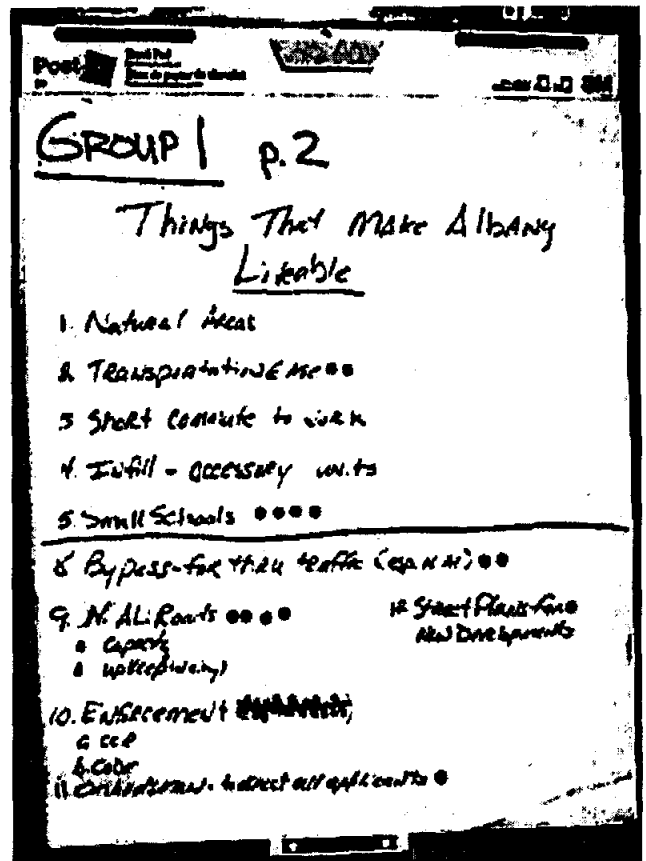 Post
GROUP 1 p.2
Things That MAKE AlbANy
Liveable
1. Natural Areas
2. TRANSportation EASe
3 Short Commute to work
4. Infill - accessory units
5. Small Schools
8 Bypass - for thru traffic
9. N. Al. Roads
a capacity
12 Street Plans for
New Developments
10. ENforcement
a. CCR
b. Code
to direct all applicants